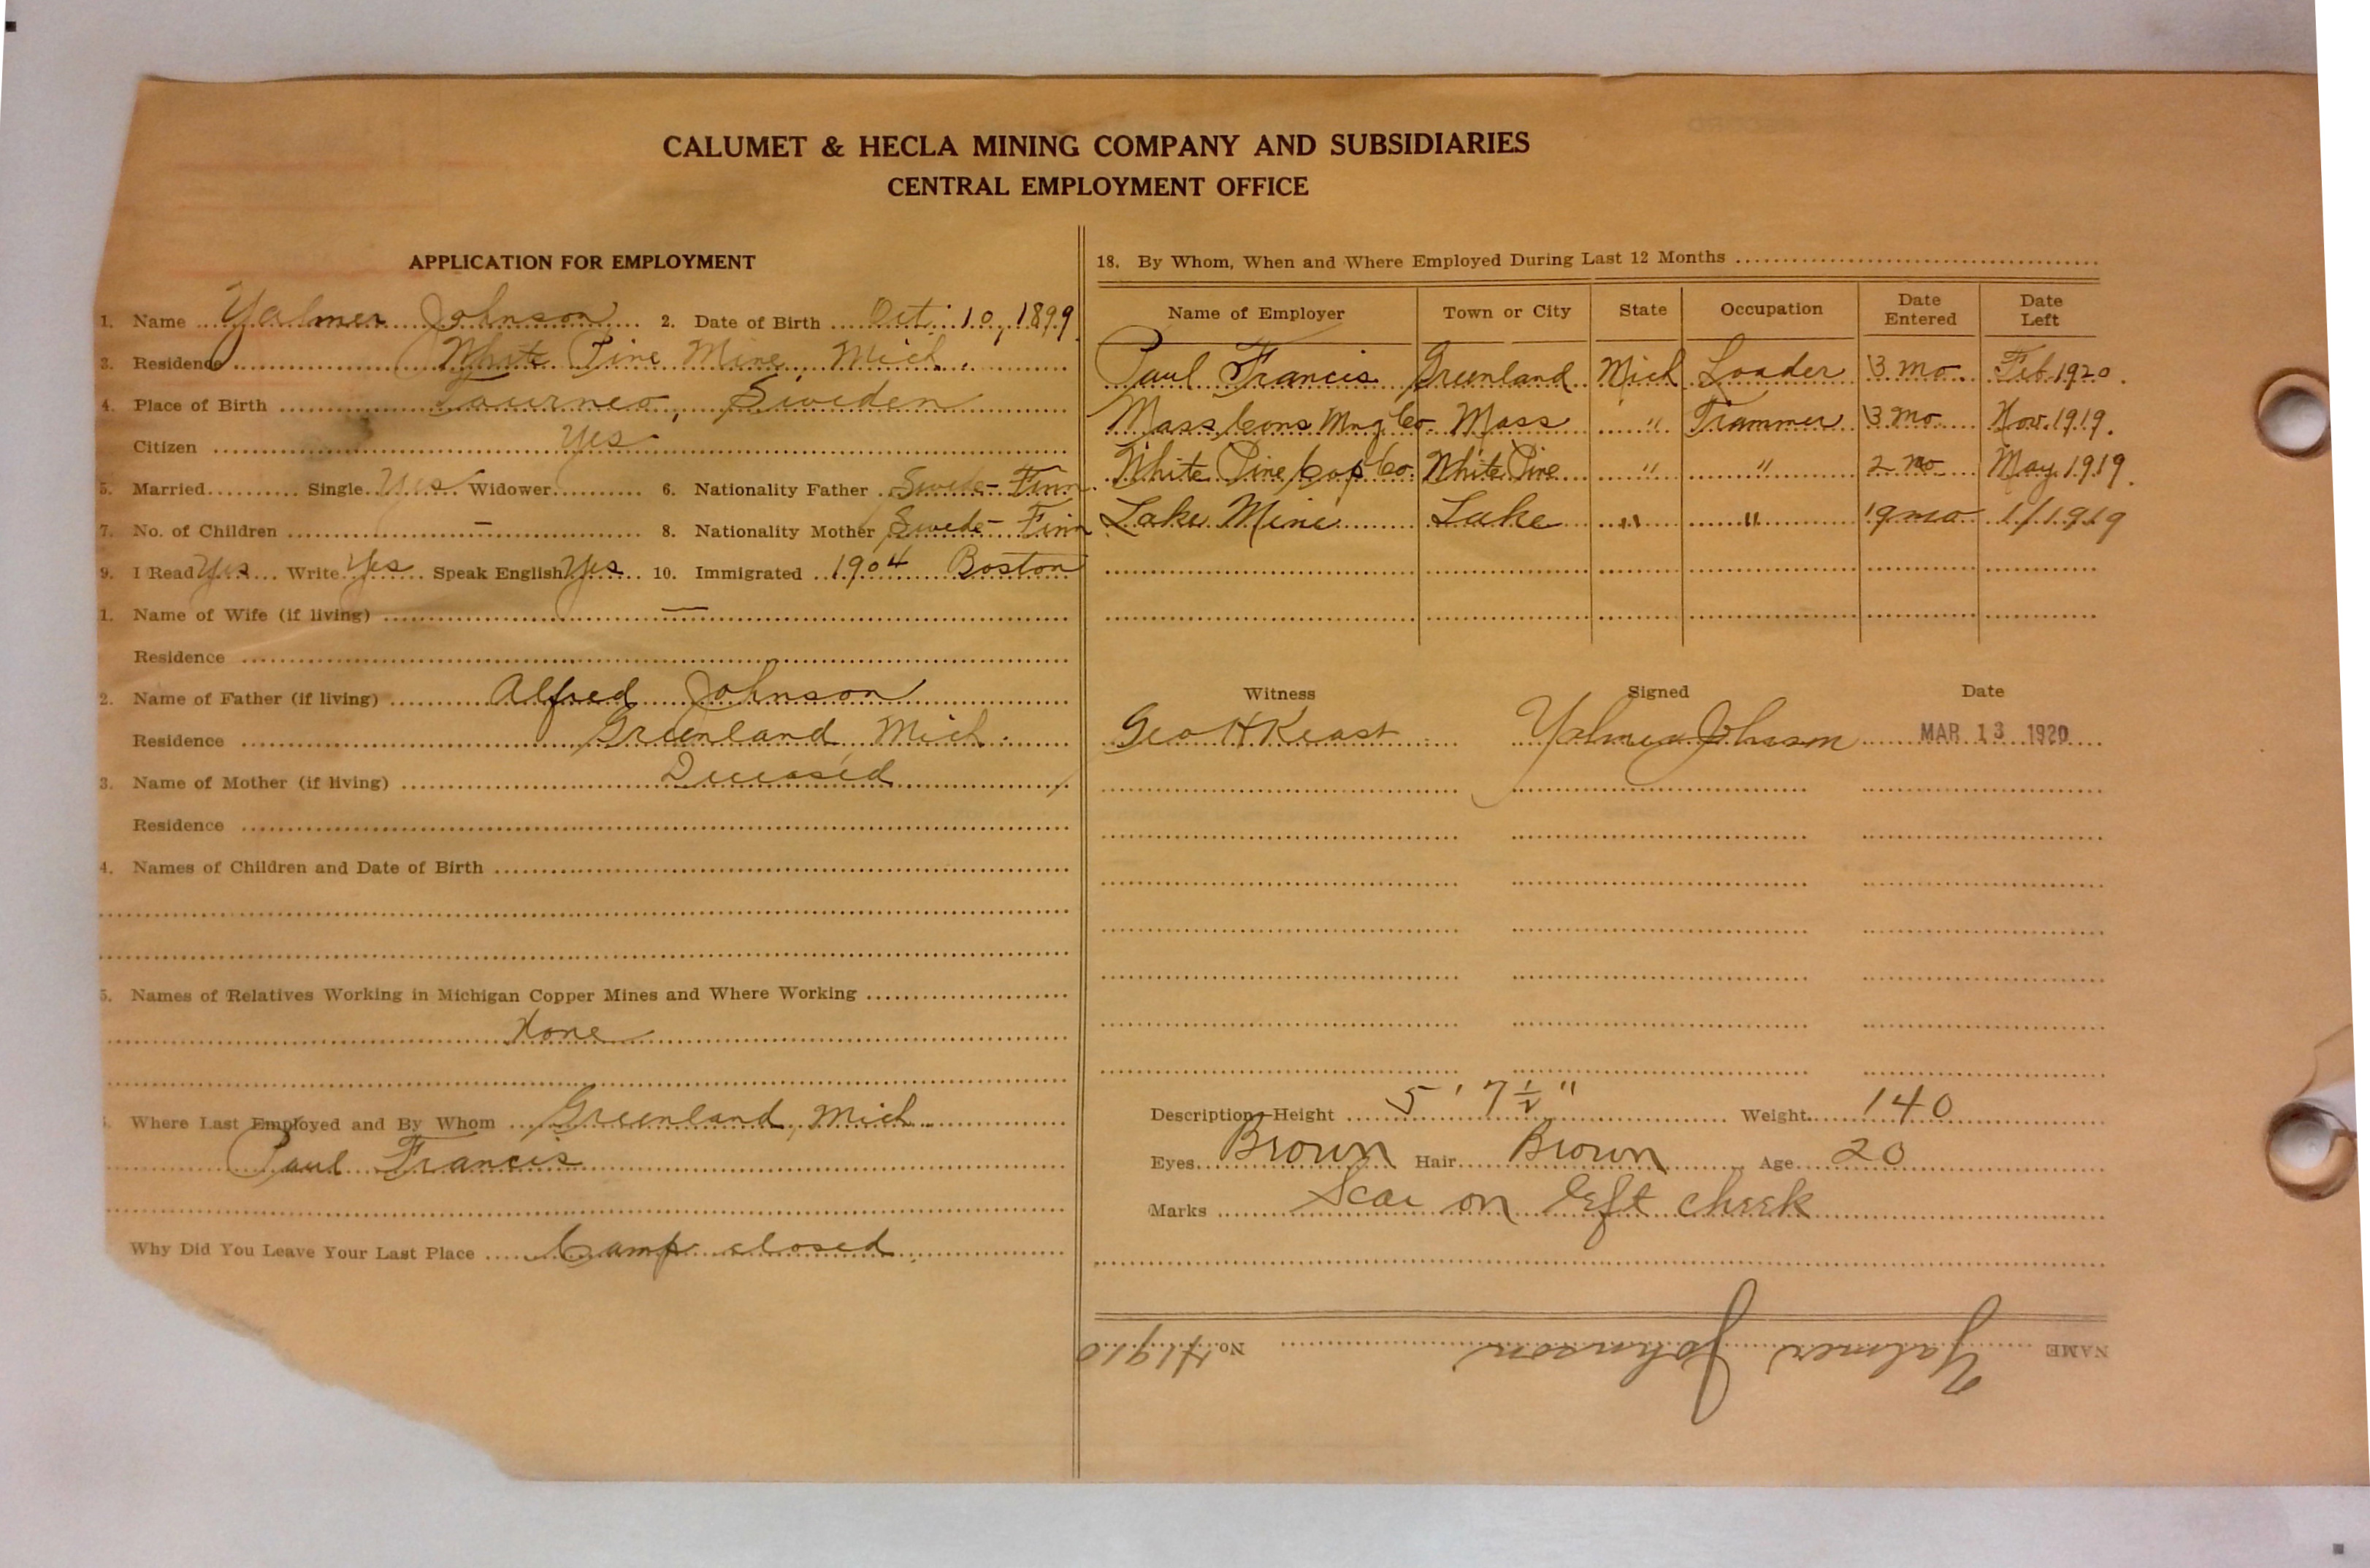 CALUMET & HECLA MINING COMPANY AND SUBSIDIARIES
CENTRAL EMPLOYMENT OFFICE
APPLICATION FOR EMPLOYMENT
1. Name Yalmer Johnson 2. Date of Birth Oct. 10, 1899
3. Residence White Pine Mine Mich.
4. Place of Birth Tourneo, Sweden
Citizen Yes
5. Married Single Yes Widower 6. Nationality Father Swede-Finn
7. No. of Children – 8. Nationality Mother Swede-Finn
9. I Read Yes Write Yes Speak English Yes 10. Immigrated 1904 Boston
1. Name of Wife (if living) —
Residence
2. Name of Father (if living) Alfred Johnson
Residence Greenland Mich.
3. Name of Mother (if living) Deceased
Residence
4. Names of Children and Date of Birth
5. Names of Relatives Working in Michigan Copper Mines and Where Working
None
Where Last Employed and By Whom Greenland, Mich.
Paul Francis
Why Did You Leave Your Last Place Camp closed
18. By Whom, When and Where Employed During Last 12 Months
Name of Employer Town or City State Occupation Date Entered Date Left
Paul Francis Greenland Mich Loader 3 mo Feb. 1920.
Mass Cons Mng Co. Mass " Trammer 3 mo Nov. 1919.
White Pine Cop Co. White Pine " " 2 mo May 1919.
Lake Mine Lake " " 19 mo 1/1919
Witness Signed Date
Geo H Keast Yalmer Johnson MAR 13 1920
Description—Height 5' 7 1/2" Weight 140
Eyes Brown Hair Brown Age 20
Marks Scar on left cheek
NAME Yalmer Johnson No. 41910